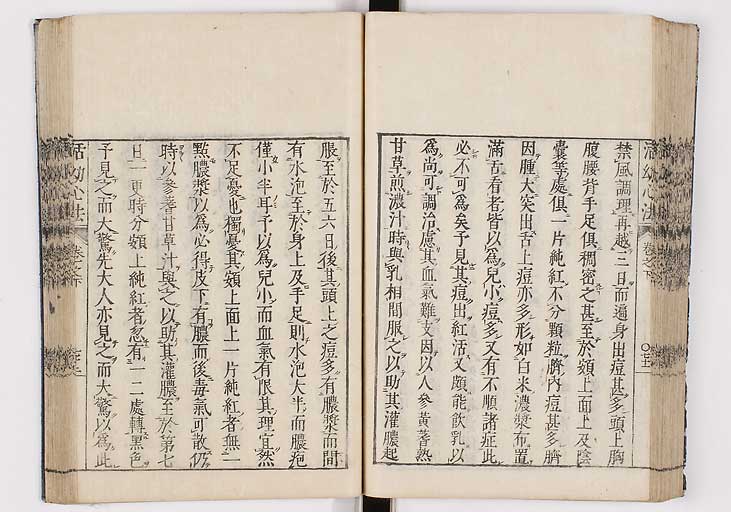 禁風調理再越三日而遍身出痘甚多頭上胸
腹腰背手足俱稠密之甚至於頦上面上及陰
囊等處俱一片純紅不分顆粒臍內痘甚多臍
因腫大突出舌上痘亦多形如白米濃漿布置
滿舌看者皆以爲兒小痘多又有不順諸症此
必不可爲矣予見其痘出紅活又頗能飲乳以
爲尚可調治慮其血氣難支因以人參黃蓍熟
甘草煎濃汁時與乳相間服之以助其灌膿起
脹至於五六日後其頭上之痘多有膿漿而間
有水泡至於身上及手足則水泡大半而膿疱
僅小半耳予以爲兒小而血氣有限其理宜然
不足憂也獨憂其頦上面上一片純紅者無一
點膿漿以爲必得皮下有膿而後毒氣可散仍
時以參蓍甘草汁與之以助其灌膿至於第七
日一更時分頦上純紅者忽有一二處轉黑色
予見之而大驚先大人亦見之而大驚以爲此
活幼心法
卷之下